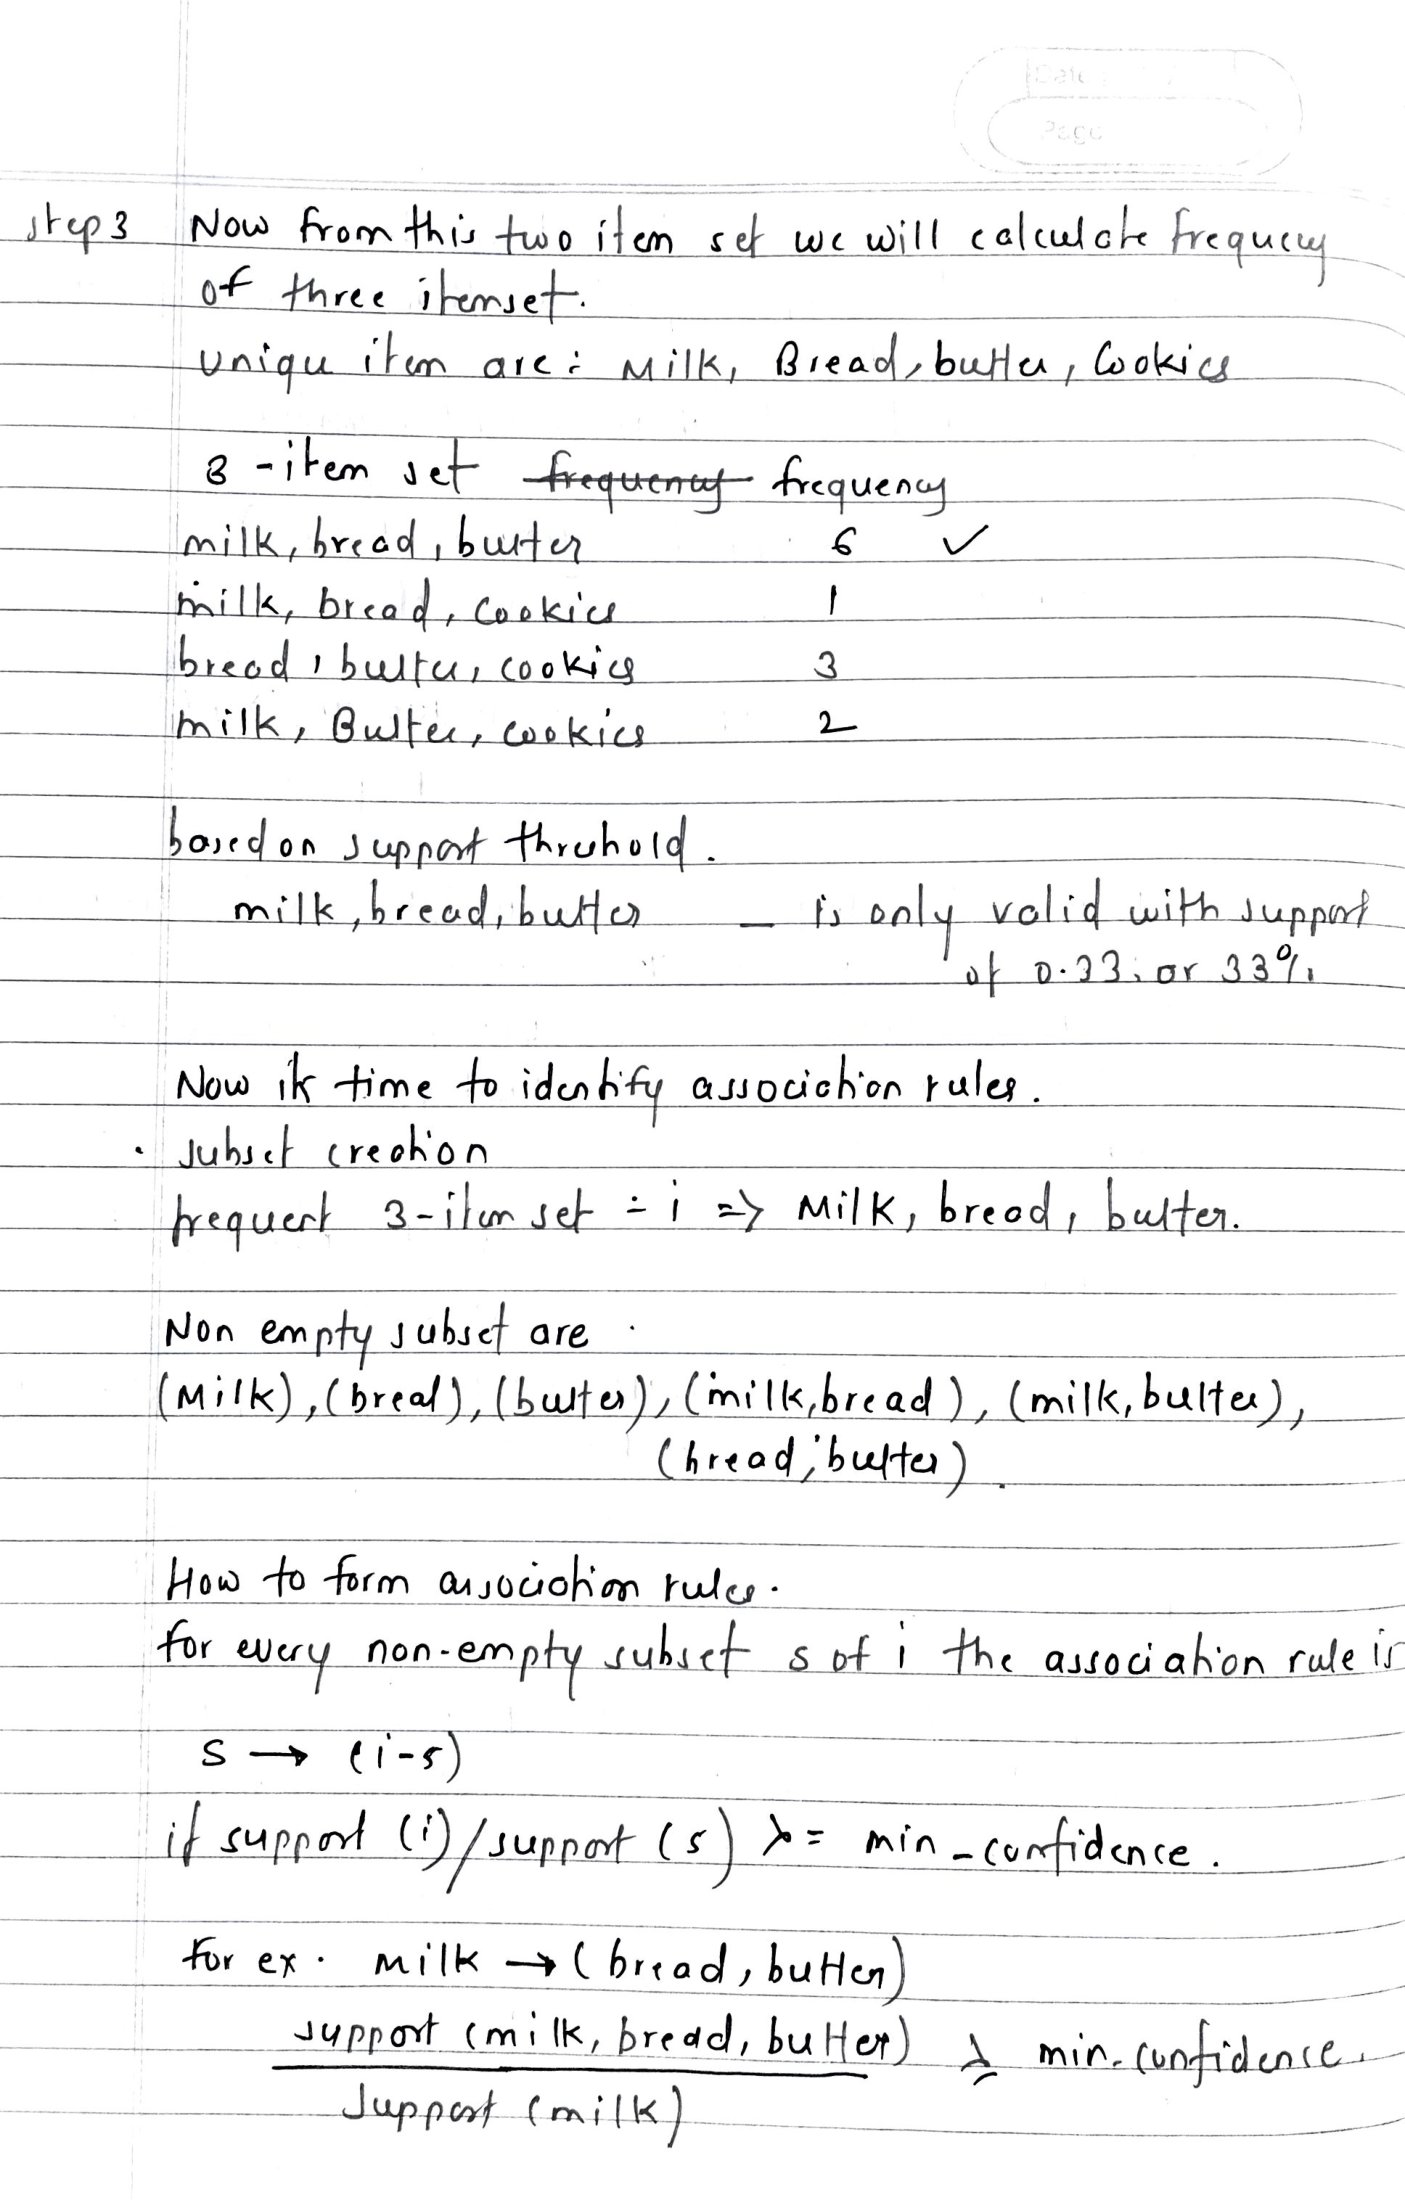 Date
Page
step 3 Now from this two item set we will calculate frequency
of three itemset.
unique item are: Milk, Bread, butter, Cookies
3-item set frequency frequency
milk, bread, butter 6 ✓
milk, bread, cookies 1
bread, butter, cookies 3
milk, Butter, cookies 2
based on support threshold.
milk, bread, butter — is only valid with support
of 0.33. or 33%
Now its time to identify association rules.
· subset creation
frequent 3-item set = i => Milk, bread, butter.
Non empty subset are
(Milk), (bread), (butter), (milk, bread), (milk, butter),
(bread, butter).
How to form association rules.
for every non-empty subset s of i the association rule is
s → (i-s)
if support (i)/support (s) >= min_confidence.
for ex. milk → (bread, butter)
support (milk, bread, butter) ≥ min. confidence.
Support (milk)